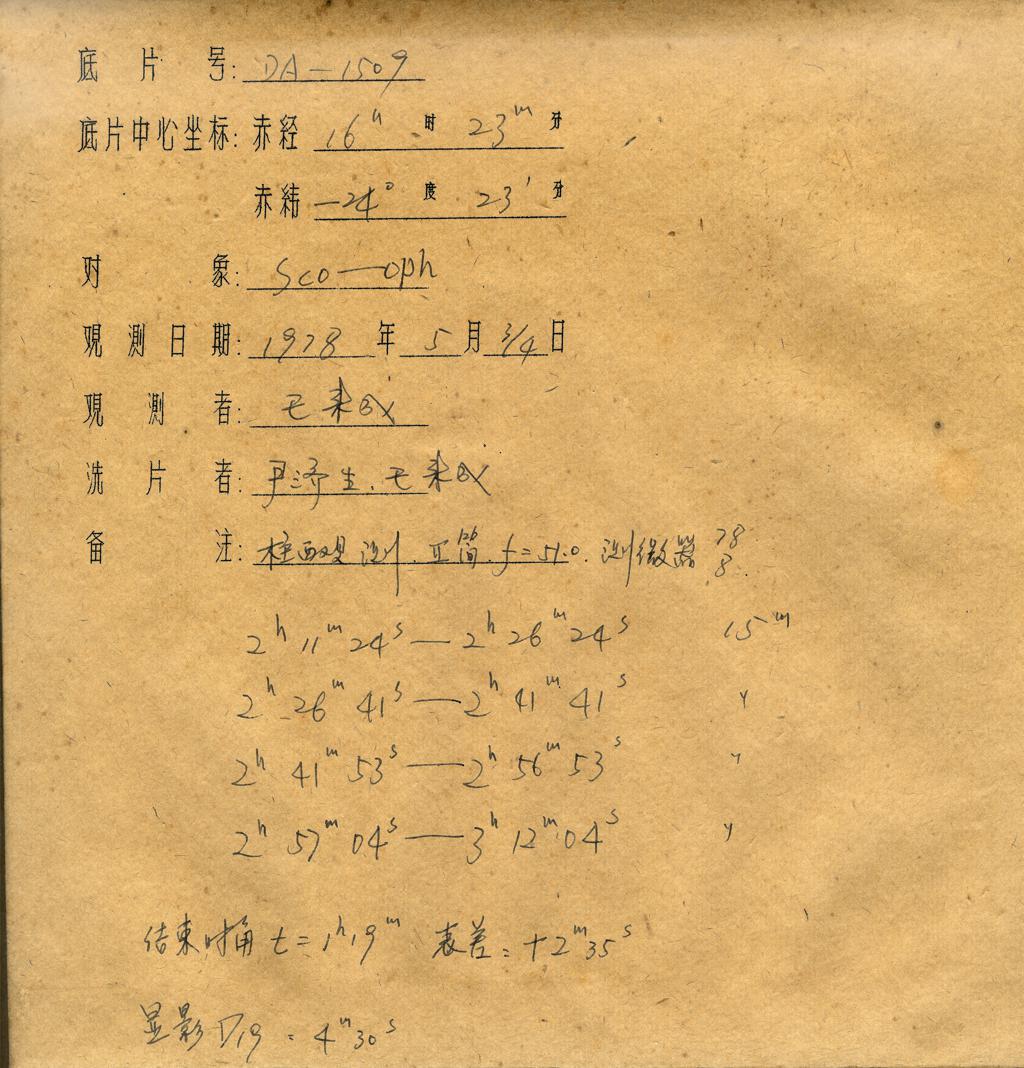 底片号: DA-1509
底片中心坐标: 赤经 16h 时 23m 分
赤纬 -24° 度 23' 分
对象: Sco—oph
观测日期: 1978 年 5 月 3/4 日
观测者:
洗片者: 尹济生.
备注: 观测. 正筒. f=51.0. 测微器 78 8.
2h 11m 24s — 2h 26m 24s 15m
2h 26m 41s — 2h 41m 41s 〃
2h 41m 53s — 2h 56m 53s 〃
2h 57m 04s — 3h 12m 04s 〃
结束时角 t=1h19m 表差: +2m35s
显影 D19: 4m30s